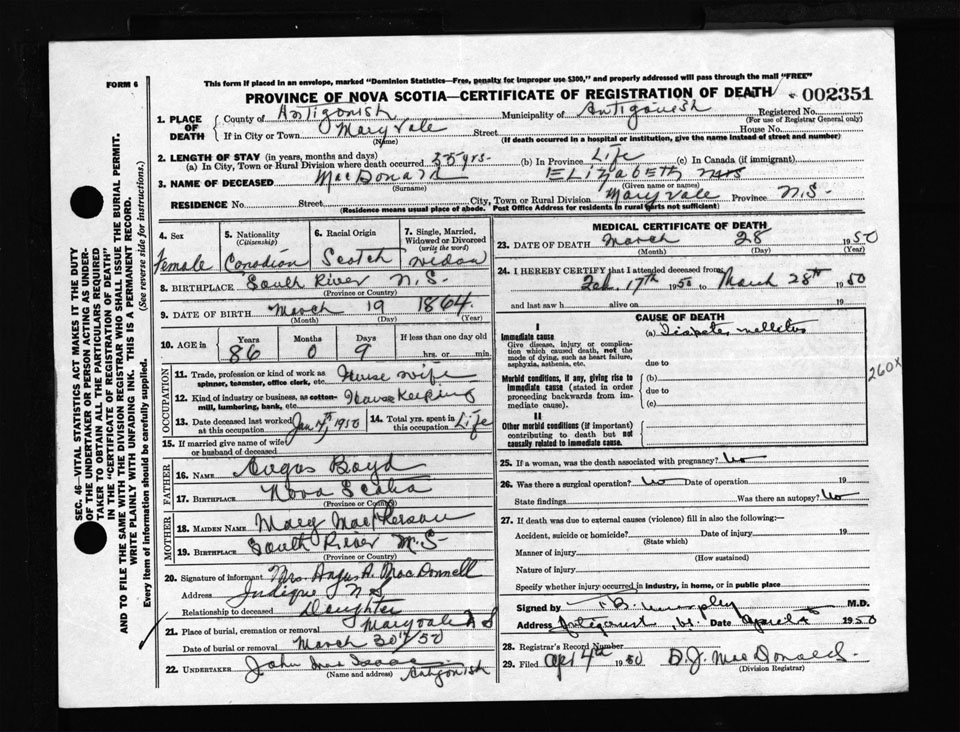 FORM 6
This form if placed in an envelope, marked "Dominion Statistics—Free, penalty for improper use $300," and properly addressed will pass through the mail "FREE"
PROVINCE OF NOVA SCOTIA—CERTIFICATE OF REGISTRATION OF DEATH 002351
SEC. 46—VITAL STATISTICS ACT MAKES IT THE DUTY
OF THE UNDERTAKER OR PERSON ACTING AS UNDER-
TAKER TO OBTAIN ALL THE PARTICULARS REQUIRED
IN THE "CERTIFICATE OF REGISTRATION OF DEATH"
AND TO FILE THE SAME WITH THE DIVISION REGISTRAR WHO SHALL ISSUE THE BURIAL PERMIT.
WRITE PLAINLY WITH UNFADING INK. THIS IS A PERMANENT RECORD.
Every item of information should be carefully supplied. (See reverse side for instructions.)
1. PLACE OF DEATH County of Antigonish Municipality of Antigonish Registered No.
(For use of Registrar General only)
If in City or Town Mary Vale Street House No.
(Name) (If death occurred in a hospital or institution, give the name instead of street and number)
2. LENGTH OF STAY (in years, months and days)
(a) In City, Town or Rural Division where death occurred 35 yrs. (b) In Province Life (c) In Canada (if immigrant)
3. NAME OF DECEASED MacDonald ELIZABETH Mrs
(Surname) (Given name or names)
RESIDENCE No. Street City, Town or Rural Division Maryvale Province N.S.
(Residence means usual place of abode. Post Office Address for residents in rural parts not sufficient)
4. Sex Female
5. Nationality (Citizenship) Canadian
6. Racial Origin Scotch
7. Single, Married, Widowed or Divorced (write the word) widow
8. BIRTHPLACE South River N.S.
(Province or Country)
9. DATE OF BIRTH March 19 1864
(Month) (Day) (Year)
10. AGE in Years 86 Months 0 Days 9 If less than one day old hrs. or min.
OCCUPATION
11. Trade, profession or kind of work as spinner, teamster, office clerk, etc. House wife
12. Kind of industry or business, as cotton-mill, lumbering, bank, etc. House Keeping
13. Date deceased last worked at this occupation Jan 7th 1950
14. Total yrs. spent in this occupation Life
15. If married give name of wife or husband of deceased
FATHER
16. NAME Angus Boyd
17. BIRTHPLACE Nova Scotia
(Province or Country)
MOTHER
18. MAIDEN NAME Mary MacPherson
19. BIRTHPLACE South River N.S.
(Province or Country)
20. Signature of informant Mrs. Angus A. MacDonnell
Address Judique N S
Relationship to deceased Daughter
21. Place of burial, cremation or removal Maryvale N S
Date of burial or removal March 30th/50
22. UNDERTAKER John MacIsaac Antigonish
(Name and address)
MEDICAL CERTIFICATE OF DEATH
23. DATE OF DEATH March 28 1950
(Month) (Day) (Year)
24. I HEREBY CERTIFY that I attended deceased from
Feb. 17th 1950 to March 28th 1950
and last saw h alive on 19
CAUSE OF DEATH
I
Immediate cause (a) Diabetes mellitus
Give disease, injury or complication which caused death, not the mode of dying, such as heart failure, asphyxia, asthenia, etc.
due to
Morbid conditions, if any, giving rise to immediate cause (stated in order proceeding backwards from immediate cause).
(b)
due to
(c)
260X
II
Other morbid conditions (if important) contributing to death but not causally related to immediate cause.
25. If a woman, was the death associated with pregnancy? No
26. Was there a surgical operation? No Date of operation 19
State findings Was there an autopsy? No
27. If death was due to external causes (violence) fill in also the following:—
Accident, suicide or homicide? Date of injury 19
(State which)
Manner of injury
(How sustained)
Nature of injury
Specify whether injury occurred in industry, in home, or in public place
Signed by T B Murphy M.D.
Address Antigonish Date April 1950
28. Registrar's Record Number
29. Filed Apl 4th 1950 D.J. MacDonald
(Division Registrar)